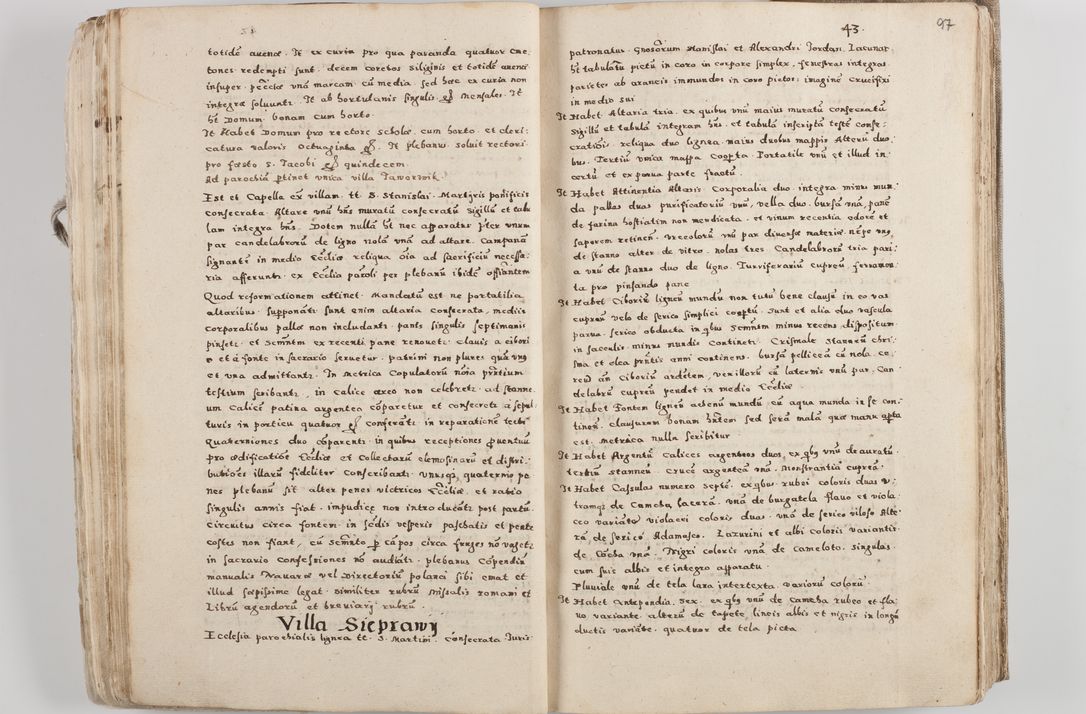 totidē avenæ. It ex curia pro qua paranda quatuor cme,
tones redempti sunt. decem coretos siliginis et totidē avenæ
insuper pecuniæ unā marcam cū media. sed hæc ex curia non
integræ soluunt. It ab hortulanis singulis gr mensales. It
ht Domum bonam cum horto
It Habet Domum pro rectore scholæ cum horto. et cleri,
catura valoris Octuaginta gr. It plebanus soluit rectori
pro festo S. Jacobi gr quindecem.
Ad parochiā ptinet unica villa Jawornik.
Est et Capella ex villam. tt. S. Stanislai. Martyris pontificis
consecrata. Altare unū hns muratū consecratū sigillū et tabu
lam integra hns. Dotem nullā ht nec apparatus pter unum
par candelabrorū de ligno nola unā ad altare. Campanā
signantē in medio Ecclæ reliqua oīa ad sacrificiū necessa:
ria afferunt ex Ecclia paroli per plebanū ibidē offiantem
Quod reformationem attinet. Mandatū est ne portatilia
altaribus supponāt sunt enim altaria consecrata, mediis
corporalibus pallæ non includant. panis singulis septimanis
pinset et Scmntm ex recenti pane renovet. clavis a cibori
o et a fonte in sacrario servetur. patrini non plures quā unus
et una admittant. In metrica Copulatorū noīa pntium
testium scribant, in calice æreo non celebret. ad stanne
um Calice patina argentea coparetur et consecret a sepul
turis in porticu quatuor gr conferāt in reparatione tecti
Quaterniones duo coparent in quibus receptiones proventuū
pro ædificatiōe Ecclæ et Collectarū elemosinarū et distri,
butiones illarū fideliter conscribant. unusqs quaternio pe
nes plebanū sit alter penes victricos Eccliæ. et ratio
singulis annis fiat. impudicæ non introducāt post partū.
Circuitus circa fontem in sedis vesperis paschatis et pente
costes non fiant, cū Scmnto p cāpos circa fruges nō vaget
in sacrario confessiones nō audiat. plebanus Copendiū
manualis Navaræ vel Directoriū polanci sibi emat et
illud sæpissime legat. similiter rubrū missalis romani et
Librū agendorū et breviarij rubrū.
Villa Sieprawy
Ecclesia parochialis lignea tt. S. Martini. Consecrata Iuris
43. 97
patronatus. Gnosorum Stanislai et Alexandri Jordan. Lacunar
ht tabulatū pictū in coro in corpore simplex. fenestras integras
parietes ab araneis immundos in coro pictos. imaginē Crucifixi
in medio sui
It Habet Altaria tria. ex quibus unū maius muratū consecratū
sigillū et tabulā integram hns. et tabulā inscriptā testē conse,
crationi. reliqua duo lignea. maius duobus mappis Alterū duo,
bus. Tertiū unica mappa Coopta. Portatile unū et illud in,
certū et ex parva parte fractū.
It Habet Attinentia Altaris Corporalia duo. integra minus mun,
da pallas duas purificatoriū unū, vella duo. bursā unā, panē
de farina hostiatim non mendicata. et vinum recentia odore et
saporem retinen. Vrceolorū unū par diversæ materiæ. nepe unus
de stanno. alter de vitro. nolas tres. Candelabrorū tria pari,
a unū de stanno duo de ligno. Turriferariū cupreū ferramen,
ta pro pinsando pane
It Habet Ciboriū ligneū mundū non tutū bene clausū in eo vas
cupreū velo de serico simplici cooptū. Sunt et alia duo vascula
parva. serico obducta in qbus Scmntm minus recens, dispositum
in sacculis minus mundis Continet. Crismale Stanneū chri,
sma et olea pntis anni continens. bursā pelliceā cū nola. ce,
reū an Ciboriū ardetem, vexillorū cū laternis unū par. Can,
delabrū cupreū pendet in medio Ecclæ
It Habet Fontem ligneū aebenū mundū cū aqua munda in se con,
tinen. clausuram bonam hntem sed serā malā quæ manu apta
est. metrica nulla scribitur
It Habet Argentū Calices argenteos duos, ex qbus unū deauratū.
tertiū stanneū. Crucē argenteā unā. Monstrantiā cupreā.
It Habet Casulas numero septē. ex qbus rubei coloris duas u,
tramqz de Camcha lacerā. unā de burgatela flavo et viola,
ceo variatā violacei coloris duas. unā de serico viloso Alte
rā, de serico Adamasco. Lazurini et albi coloris variantis
de Cācha unā. Nigri coloris unā de cameloto. singulas
cum suis albis et integro apparatu.
Pluviale unū de tela lara intertexta. variorū colorū
It Habet Antependia. sex. ex qbus unū de Camcha rubeo et fla,
vo. variante. alterū de tapete, lineis albis et nigris in longū
ductis variāte. quatuor de tela picta